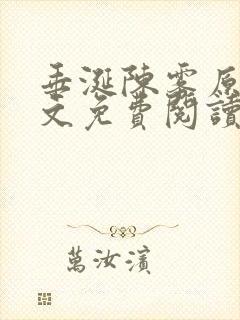 垂涎陳霁原
文免費閱讀
萬汝濱